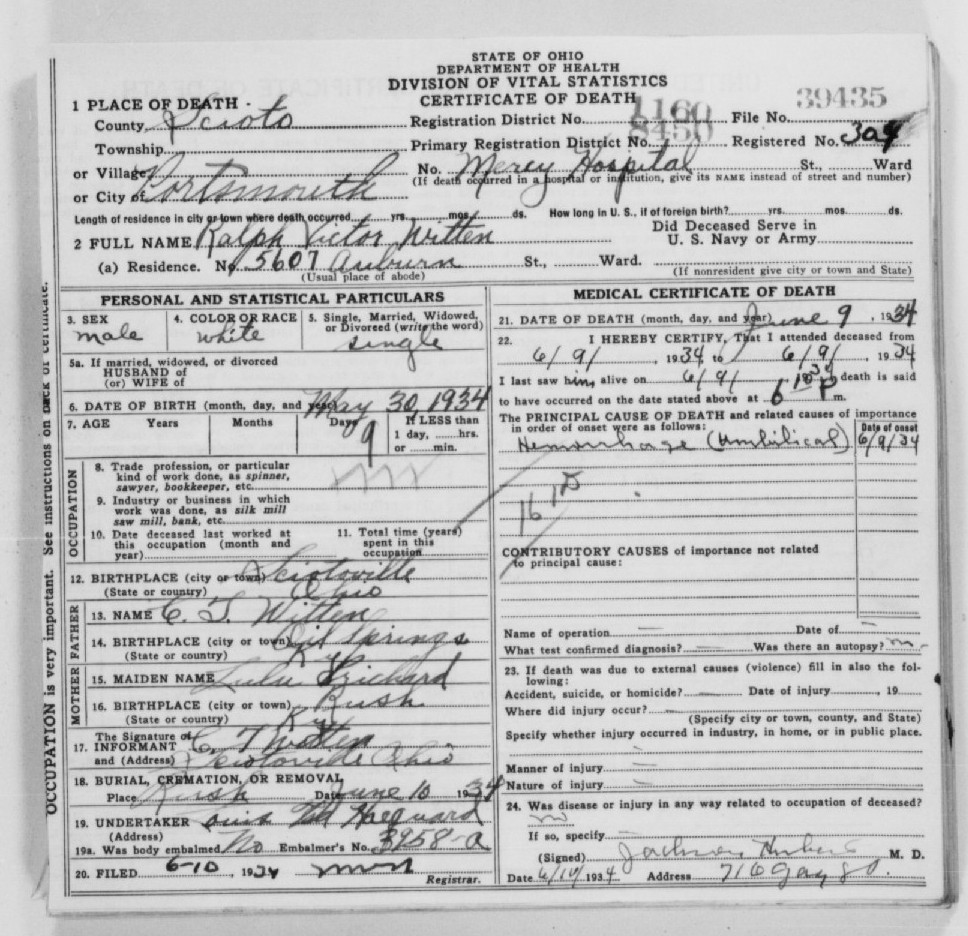 STATE OF OHIO
DEPARTMENT OF HEALTH
DIVISION OF VITAL STATISTICS
CERTIFICATE OF DEATH
1 PLACE OF DEATH
County Scioto
Registration District No. 1160 File No. 39435
Township
Primary Registration District No. 8450 Registered No. 304
or Village
No. Mercy Hospital St., Ward
or City of Portsmouth
(If death occurred in a hospital or institution, give its NAME instead of street and number)
Length of residence in city or town where death occurred yrs. mos. ds. How long in U. S., if of foreign birth? yrs. mos. ds.
2 FULL NAME Ralph Victor Witten
Did Deceased Serve in
U. S. Navy or Army
(a) Residence. No. 5607 Auburn St., Ward.
(Usual place of abode) (If nonresident give city or town and State)
PERSONAL AND STATISTICAL PARTICULARS
3. SEX
male
4. COLOR OR RACE
white
5. Single, Married, Widowed,
or Divorced (write the word)
single
5a. If married, widowed, or divorced
HUSBAND of
(or) WIFE of
6. DATE OF BIRTH (month, day, and year) May 30, 1934
7. AGE Years Months Days If LESS than
9 1 day, hrs.
or min.
OCCUPATION
8. Trade profession, or particular
kind of work done, as spinner,
sawyer, bookkeeper, etc.
9. Industry or business in which
work was done, as silk mill
saw mill, bank, etc.
10. Date deceased last worked at
this occupation (month and
year)
11. Total time (years)
spent in this
occupation
12. BIRTHPLACE (city or town) Sciotoville
(State or country) Ohio
FATHER
13. NAME C. T. Witten
14. BIRTHPLACE (city or town) Oil Springs
(State or country) Ky
MOTHER
15. MAIDEN NAME Lulu Prichard
16. BIRTHPLACE (city or town) Rush
(State or country) Ky
The Signature of
17. INFORMANT C. T Witten
and (Address) Sciotoville Ohio
18. BURIAL, CREMATION, OR REMOVAL
Place Rush Date June 10 1934
19. UNDERTAKER
(Address)
19a. Was body embalmed No Embalmer's No. 3958-a
20. FILED 6-10, 1934
Registrar.
MEDICAL CERTIFICATE OF DEATH
21. DATE OF DEATH (month, day, and year) June 9, 1934
22. I HEREBY CERTIFY, That I attended deceased from
6/9/, 1934 to 6/9/, 1934
I last saw him alive on 6/9/ 1934 death is said
to have occurred on the date stated above at P m.
The PRINCIPAL CAUSE OF DEATH and related causes of importance
in order of onset were as follows:
Date of onset
Hemorrhage (Umbilical) 6/9/34
CONTRIBUTORY CAUSES of importance not related
to principal cause:
Name of operation — Date of —
What test confirmed diagnosis? — Was there an autopsy? no
23. If death was due to external causes (violence) fill in also the following:
Accident, suicide, or homicide? — Date of injury , 19
Where did injury occur? —
(Specify city or town, county, and State)
Specify whether injury occurred in industry, in home, or in public place.
Manner of injury —
Nature of injury —
24. Was disease or injury in any way related to occupation of deceased?
no
If so, specify
(Signed) M. D.
Date 6/10/1934 Address 716 Gay St.
OCCUPATION is very important. See instructions on back of certificate.